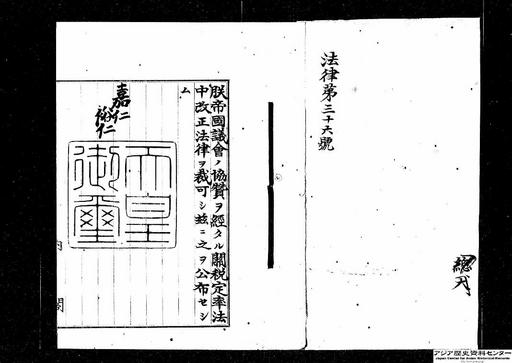 法律第三十六號
總九
朕帝國議會ノ協贊ヲ經タル關稅定率法
中改正法律ヲ裁可シ玆ニ之ヲ公布セシ
ム
嘉仁
裕仁
天皇
御璽
內閣
アジア歴史資料センター
Japan Center for Asian Historical Records